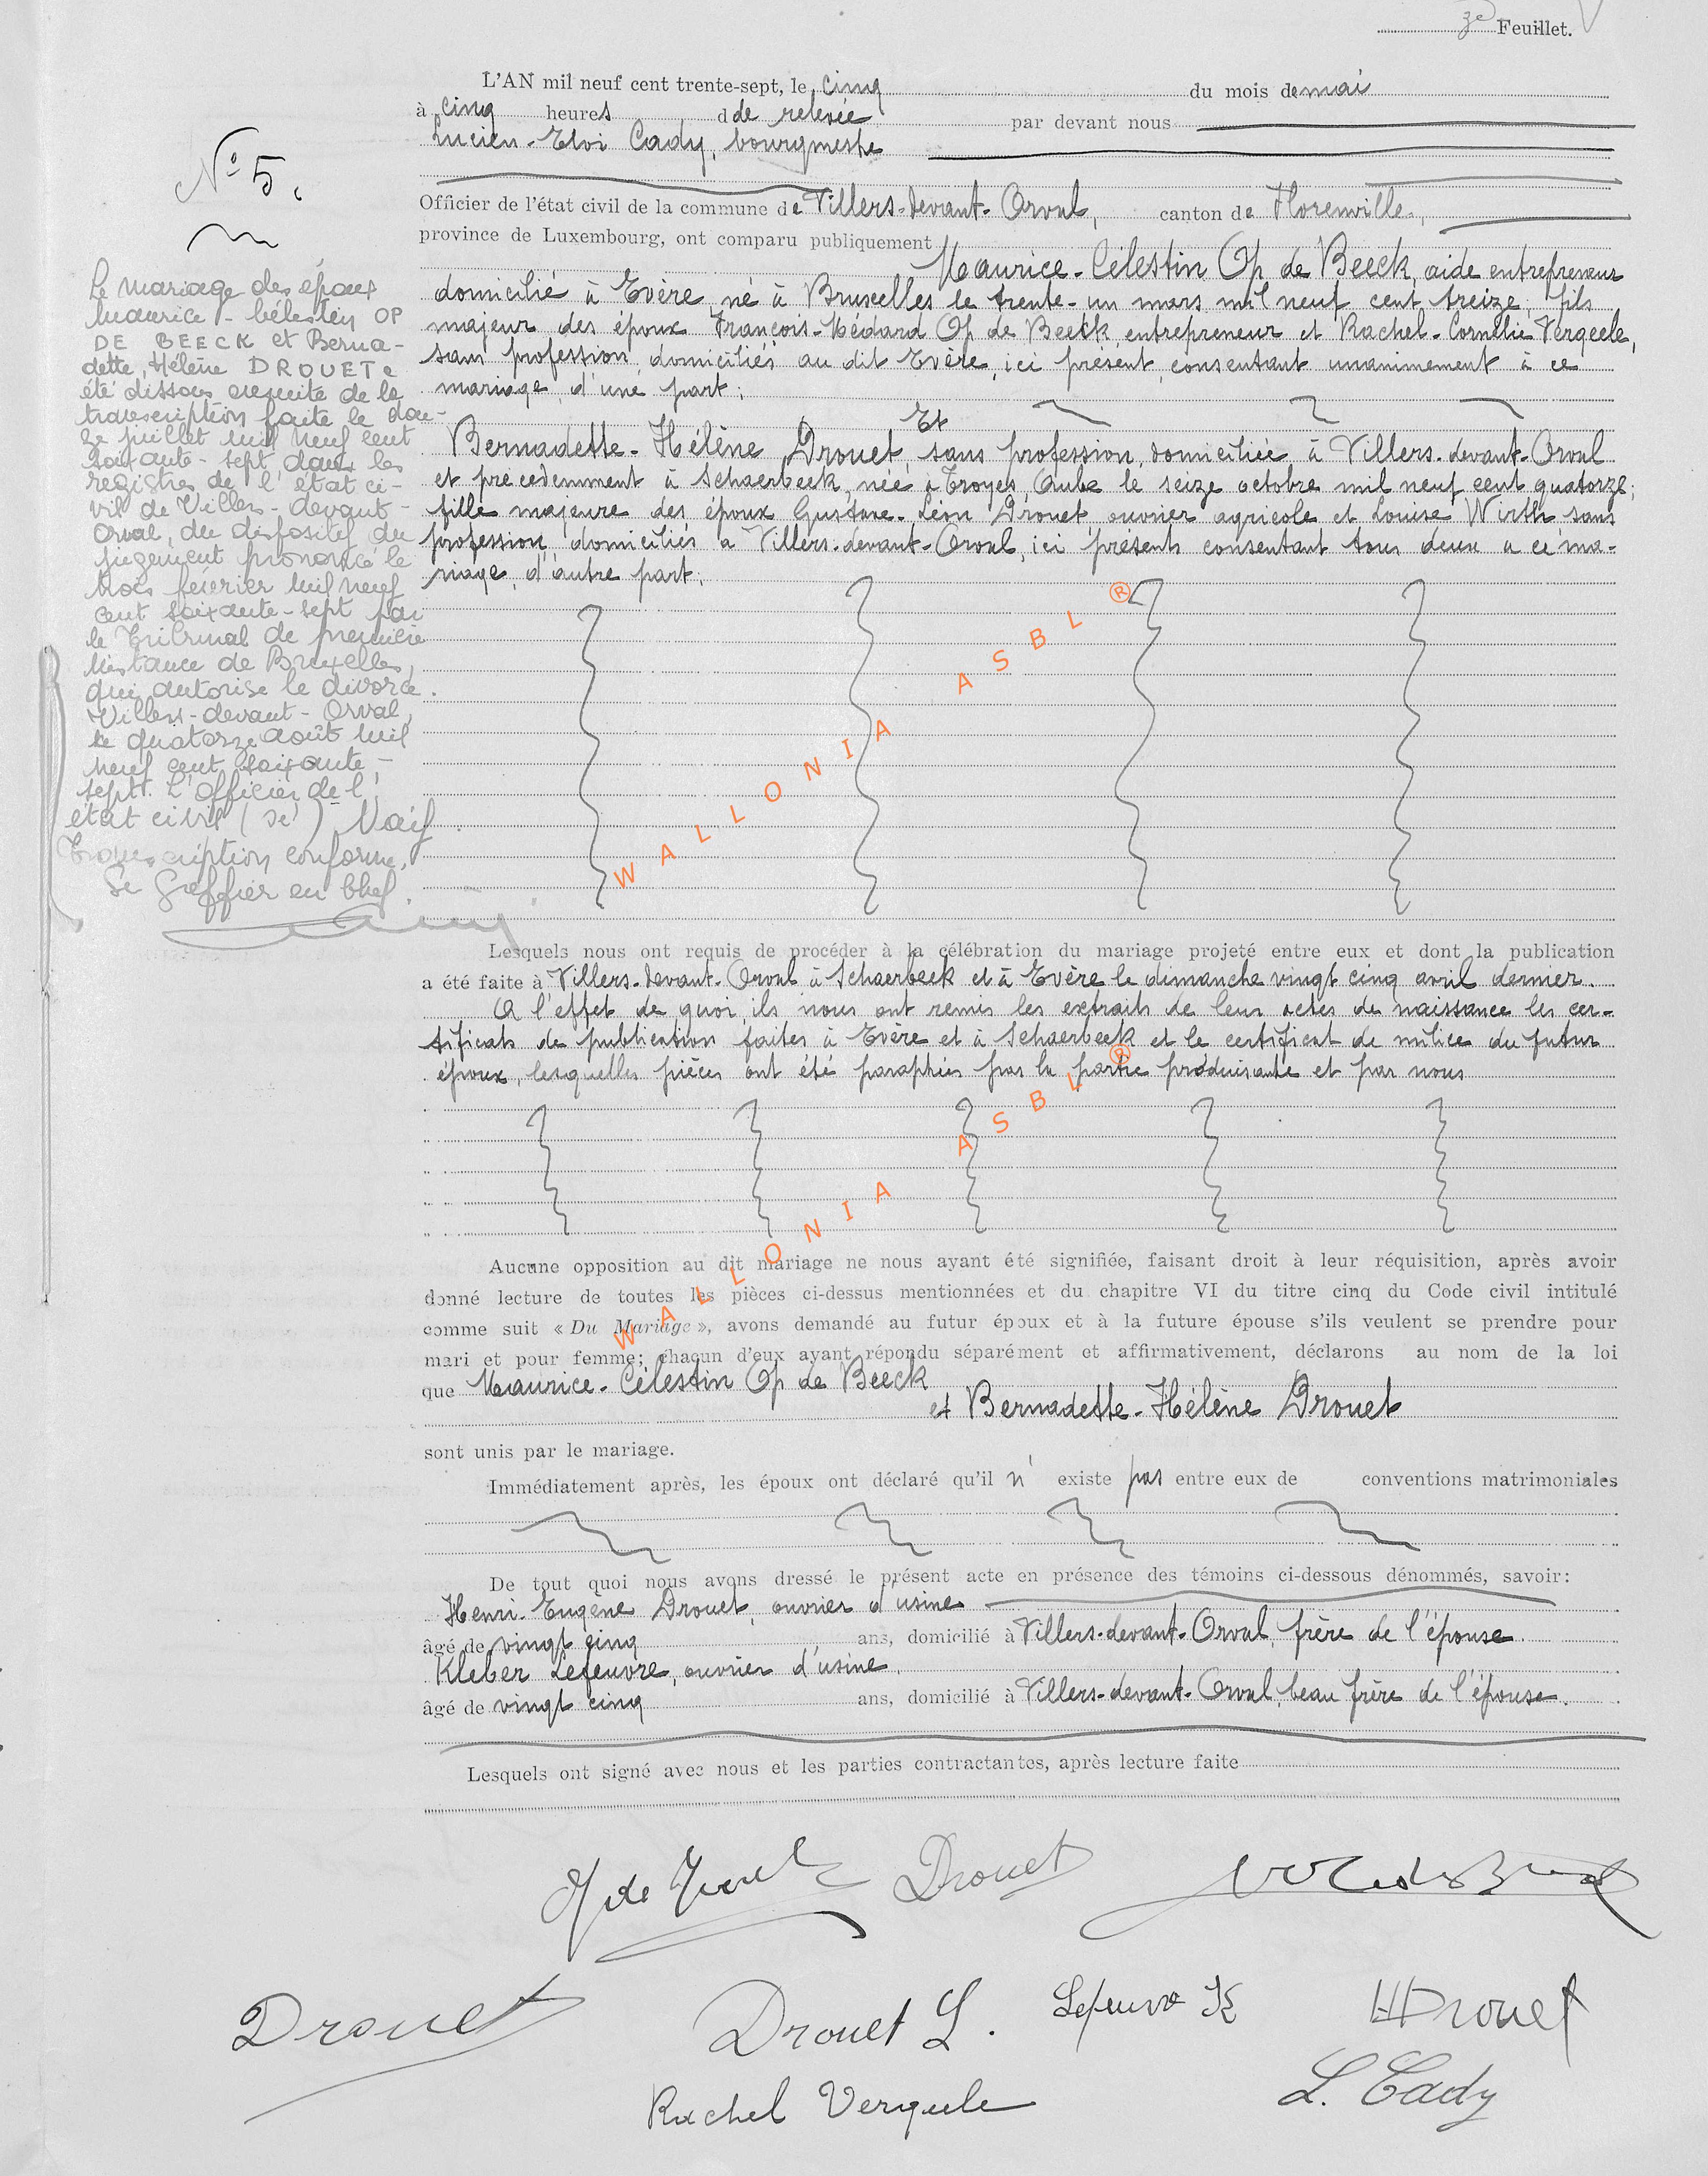 3e Feuillet.
L'AN mil neuf cent trente-sept, le cinq du mois de mai
à cinq heures d de relevée par devant nous
Lucien-Eloi Cady, bourgmestre
Officier de l'état civil de la commune de Villers-devant-Orval, canton de Florenville,
province de Luxembourg, ont comparu publiquement
Maurice-Célestin Op de Beeck, aide entrepreneur
domicilié à Evère, né à Bruxelles le trente-un mars mil neuf cent treize, fils
majeur des époux François-Médard Op de Beeck, entrepreneur et Rachel-Cornélie Vergeele,
sans profession, domiciliés au dit Evère, ici présent, consentant unanimement à ce
mariage, d'une part;
Et
Bernadette-Hélène Drouet, sans profession, domiciliée à Villers-devant-Orval
et précédemment à Schaerbeek, née à Troyes, Aube le seize octobre mil neuf cent quatorze;
fille majeure des époux Gustave-Léon Drouet ouvrier agricole et Louise Wirth sans
profession, domiciliés à Villers-devant-Orval, ici présents consentant tous deux a ce ma-
riage, d'autre part.
N° 5.
Le mariage des époux
Maurice-Célestin OP
DE BEECK et Berna-
dette, Hélène DROUET a
été dissous ensuite de la
transcription faite le dou-
ze juillet mil neuf cent
soixante-sept dans les
registres de l'état ci-
vil de Villers-devant-
Orval, du dispositif du
jugement prononcé le
trois février mil neuf
cent soixante-sept par
le Tribunal de première
Instance de Bruxelles,
qui autorise le divorce.
Villers-devant-Orval,
le quatorze août mil
neuf cent soixante-
sept. L'officier de l'
état civil (sé)
Transcription conforme,
Le Greffier en Chef.
WALLONIA ASBL ®
Lesquels nous ont requis de procéder à la célébration du mariage projeté entre eux et dont la publication
a été faite à Villers-devant-Orval à Schaerbeek et à Evère le dimanche vingt cinq avril dernier.
A l'effet de quoi, ils nous ont remis les extraits de leur actes de naissance les cer-
tificats de publication faites à Evère et à Schaerbeek et le certificat de milice du futur
époux, lesquelles pièces ont été paraphées par la partie produisante et par nous
WALLONIA ASBL ®
Aucune opposition au dit mariage ne nous ayant été signifiée, faisant droit à leur réquisition, après avoir
donné lecture de toutes les pièces ci-dessus mentionnées et du chapitre VI du titre cinq du Code civil intitulé
comme suit « Du Mariage », avons demandé au futur époux et à la future épouse s'ils veulent se prendre pour
mari et pour femme; chacun d'eux ayant répondu séparément et affirmativement, déclarons au nom de la loi
que Maurice-Célestin Op de Beeck
et Bernadette-Hélène Drouet
sont unis par le mariage.
Immédiatement après, les époux ont déclaré qu'il n' existe pas entre eux de conventions matrimoniales
De tout quoi nous avons dressé le présent acte en présence des témoins ci-dessous dénommés, savoir:
Henri-Eugène Drouet, ouvrier d'usine
âgé de vingt cinq ans, domicilié à Villers-devant-Orval, frère de l'épouse.
Kléber Lefeuvre, ouvrier d'usine,
âgé de vingt cinq ans, domicilié à Villers-devant-Orval, beau frère de l'épouse.
Lesquels ont signé avec nous et les parties contractantes, après lecture faite
Drouet
Drouet
Drouet L.
Lefeuvre K
H Drouet
Rachel Vergeele
L. Cady